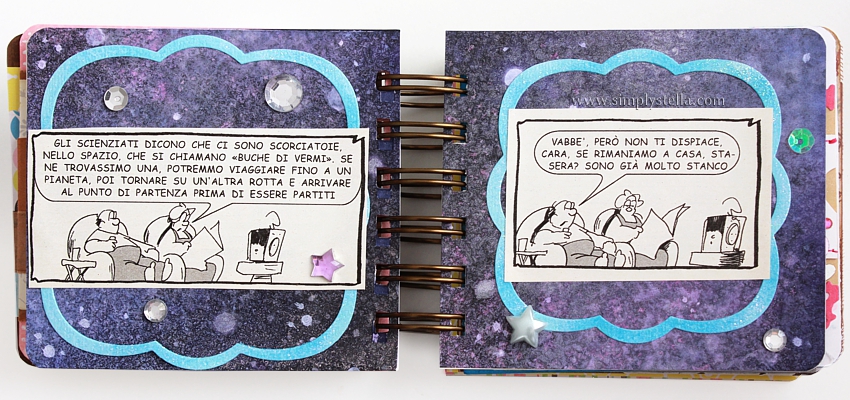 GLI SCIENZIATI DICONO CHE CI SONO SCORCIATOIE,
NELLO SPAZIO, CHE SI CHIAMANO «BUCHE DI VERMI». SE
NE TROVASSIMO UNA, POTREMMO VIAGGIARE FINO A UN
PIANETA, POI TORNARE SU UN'ALTRA ROTTA E ARRIVARE
AL PUNTO DI PARTENZA PRIMA DI ESSERE PARTITI
www.simplystella.com
VABBE', PERÒ NON TI DISPIACE,
CARA, SE RIMANIAMO A CASA, STA-
SERA? SONO GIÀ MOLTO STANCO